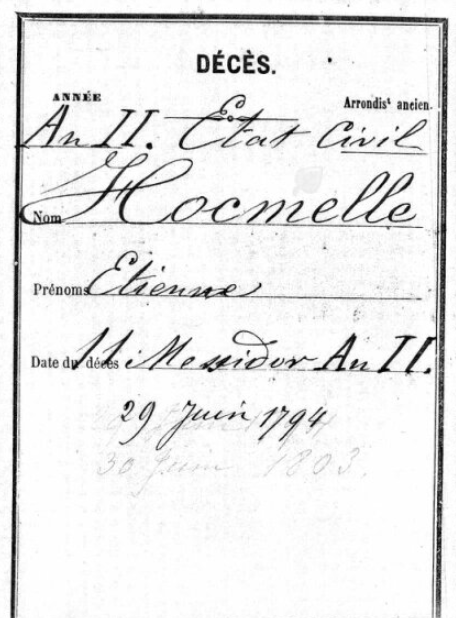 DÉCÈS.
ANNÉE Arrondist ancien.
An II. Etat Civil
Nom Hocmelle
Prénoms Etienne
Date du décès 11 Messidor An II.
29 Juin 1794
30 Juin 1803.